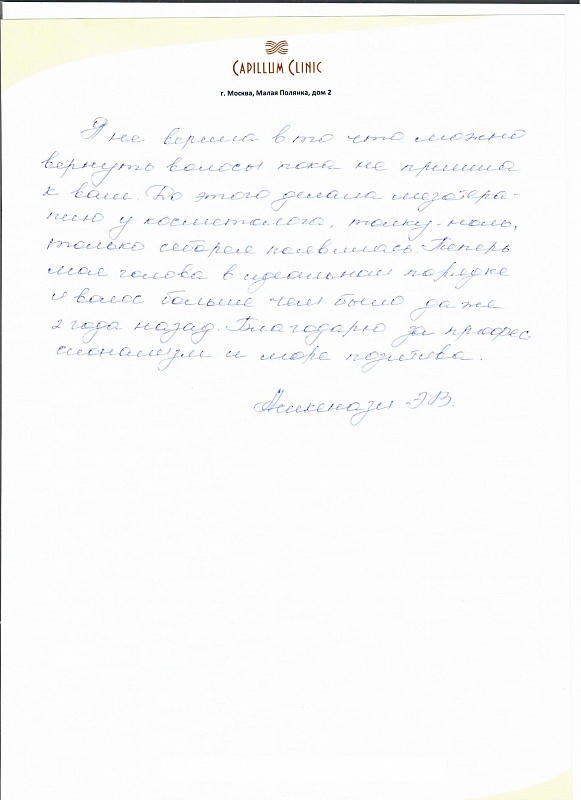 CAPILLUM CLINIC
г. Москва, Малая Полянка, дом 2
Я не верила в то что можно
вернуть волосы пока не пришла
к вам. До этого делала мезотера-
пию у косметолога, толку-ноль,
только себорея появилась. Теперь
моя голова в идеальном порядке
и волос больше чем было даже
2 года назад. Благодарю за профес
сионализм и море позитива.
Э.В.